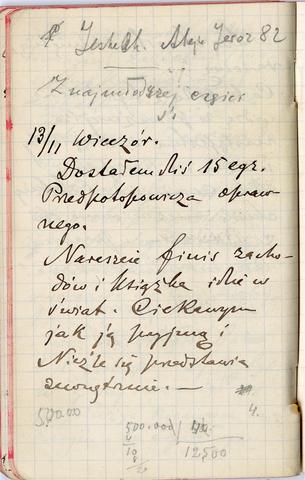 Aleje Jeroz 82
13/11 Wieczór.
Dostałem dziś 15 egz.
Przedpotopowicza opraw-
nego.
Nareszcie finis zacho-
dów i książka idzie w
świat. Ciekawym
jak ją przyjmą i
Nieźle się przedstawia
zewnętrznie. —
4.
500.000 | 40
12500